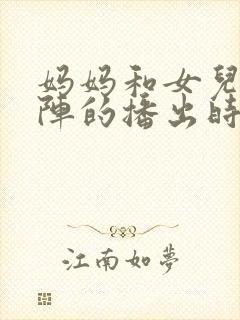 妈妈和女兒
陣的播出時
江南如夢